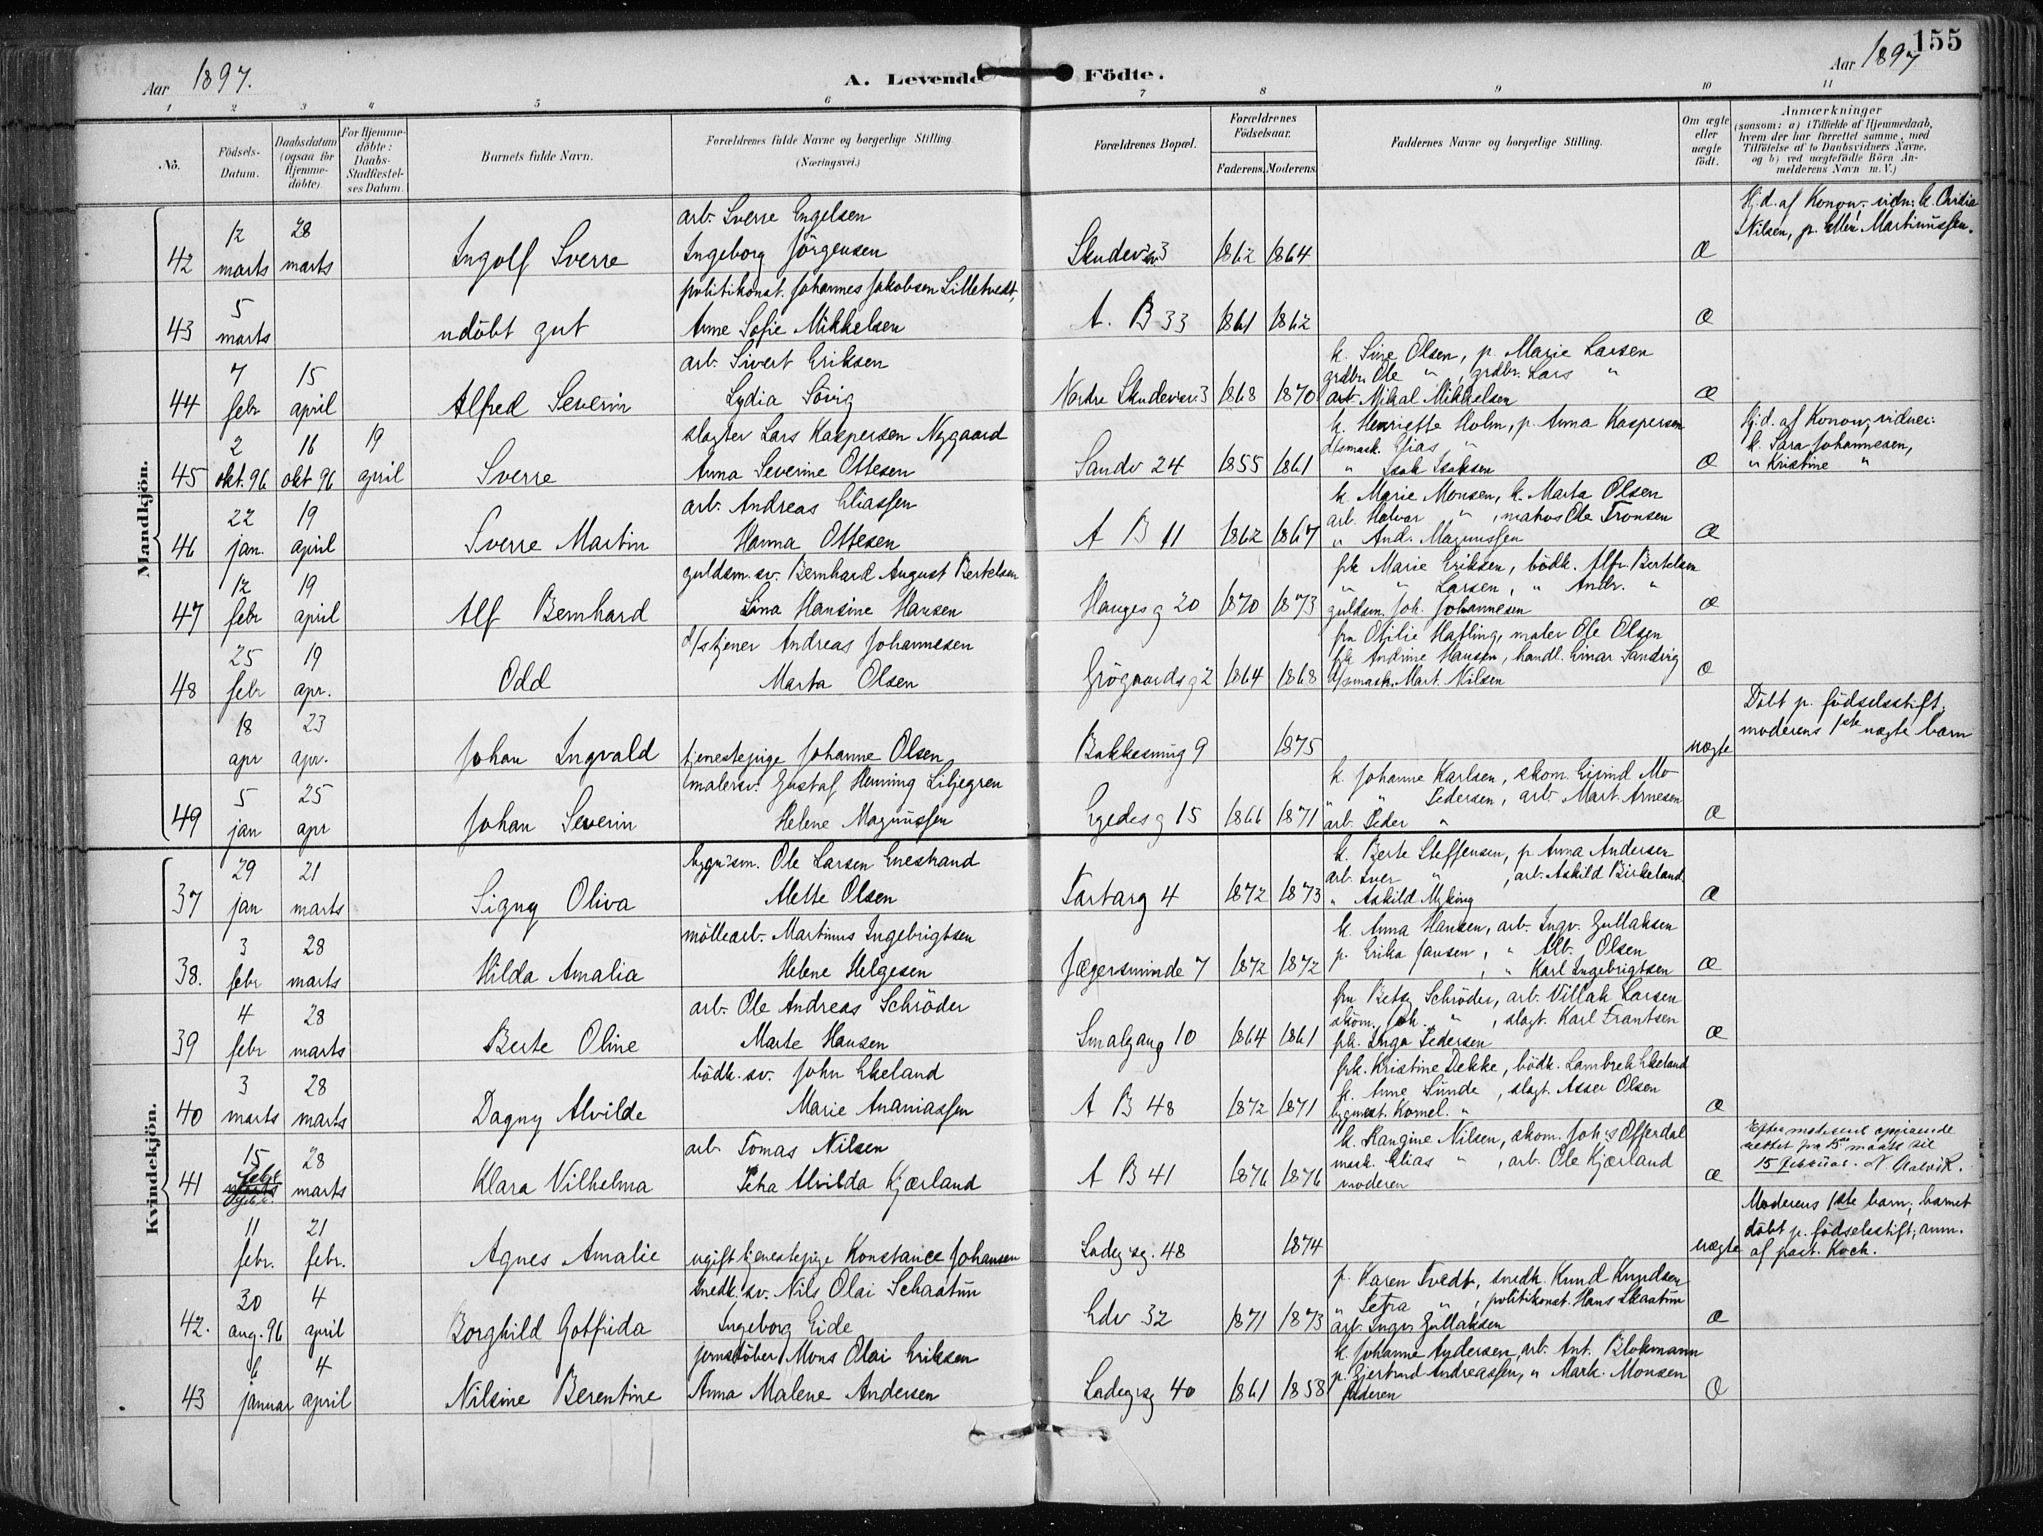 155
Aar 1897.
A. Levende Födte.
Aar 1897
1 2 3 4 5 6 7 8 9 10 11
No.
Födsels-Datum.
Daabsdatum (ogsaa for Hjemme-döbte).
For Hjemme-döbte: Daabs-Stadfæstel-ses Datum.
Barnets fulde Navn.
Forældrenes fulde Navne og borgerlige Stilling.
(Næringsvei.)
Forældrenes Bopæl.
Forældrenes Födselsaar.
Faderens. Moderens.
Faddernes Navne og borgerlige Stilling.
Om ægte eller uægte födt.
Anmærkninger
(saasom: a) i Tilfælde af Hjemmedaab, hvem der har forrettet samme, med Tilföielse af to Daabsvidners Navne, og b) ved uægtefödte Börn An-melderens Navn m. V.)
Mandkjön.
42 12 marts 28 marts Ingolf Sverre
arb. Sverre Engelsen
Ingeborg Jörgensen
Skudev 3 1862 1864 Æ
Hj.d. af Konow. vidn: k.
Nilsen, p. Ellen Martinussen.
43 5 marts udöbt gut
politikonst. Johannes Jakobsen Lilletvedt,
Anne Sofie Mikkelsen
A. B 33 1861 1862 Æ
44 7 febr 15 april Alfred Severin
arb. Sivert Eriksen
Lydia Sövig
Nordre Skudevei 3 1868 1870
k. Sire Olsen, p. Marie Larsen
grdbr. Ole " , grdbr. Lars "
arb. Mikal Mikkelsen
Æ
45 2 okt. 96 16 okt 96 19 april Sverre
slagter Lars Kaspersen Nygaard
Anna Severine Ottesen
Sandv 24 1855 1861
k. Henriette Holm, p. Anna Kaspersen
d/smask. Elias "
" Isak Isaksen
Æ
Hj.d. af Konow; vidner:
k. Sara Johannesen,
" Kristine "
46 22 jan. 19 april Sverre Martin
arb. Andreas Eliassen
Hanna Ottesen
A B 11 1862 1867
k. Marie Monsen, k. Marta Olsen
arb. Halvor " , matros Ole Tronsen
" And. Magnussen
Æ
47 12 febr 19 april Alf Bernhard
guldsm.sv. Bernhard August Bertelsen
Lina Hansine Hansen
Hauges g 20 1870 1873
frk Marie Eriksen, bödk. Alfr. Bertelsen
" " Larsen, " Andr. "
guldsm. Joh. Johannesen
Æ
48 25 febr 19 apr. Odd
d/stjener Andreas Johannesen
Marta Olsen
Grögaards g 2 1864 1868
fru Otilie Hafling, maler Ole Olsen
frk Andrine Hansen, handl. Einar Sandvig
d/smask. Mart. Nilsen
Æ
18 apr 23 apr. Johan Ingvald
tjenestepige Johanne Olsen
Bakkesmug 9 1875 uægte
Döbt p. födselsstift.
moderens 1ste uægte barn
49 5 jan 25 apr Johan Severin
malersv. Gustaf Henning Liljegren
Helene Magnussen
Egedes g 15 1866 1871
k. Johanne Karlsen, skom. Eivind Mo
" " Pedersen, arb. Mart. Arnesen
arb. Peder "
Æ
Kvindekjön.
37 29 jan 21 marts Signy Oliva
bygn.sm. Ole Larsen Enestrand
Mette Olsen
Tartarg 4 1872 1873
k. Berte Steffensen, p. Anna Andersen
arb. Iver " , arb. Askild Birkeland
" Askild Myking
Æ
38. 3 febr 28 marts Hilda Amalia
möllearb. Martinus Ingebrigtsen
Helene Helgesen
Jægersminde 7 1872 1872
k. Anna Hansen, arb. Ingv. Gullaksen
p. Erika Jansen, " Alb. Olsen
, " Karl Ingebrigtsen
Æ
39 4 febr 28 marts Berte Oline
arb. Ole Andreas Schröder
Marte Hansen
Smalgang 10 1864 1861
fru Betzy Schröder, arb. Villak Larsen
skom. Joh. " , slagt. Karl Frantsen
frk. Inga Pedersen
Æ
40 3 marts 28 marts Dagny Alvilde
bödk.sv. John Ekeland
Marie Ananiassen
A B 48 1872 1871
frk. Kristine Dekke, bödk. Lambrek Ekeland
k. Anne Sunde , slagt. Asser Olsen
bygmest. Kornel. "
Æ
41 15 febr 28 marts Klara Vilhelma
arb. Tomas Nilsen
Petra Alvilda Kjærland
A B 41 1876 1876
k. Rangine Nilsen, skom. Joh's Offerdal
mask. Elias " , arb. Ole Kjærland
moderen
Æ
Efter moderens opgivende
rettet fra 15de marts til
15 februar.
11 febr. 21 febr. Agnes Amalie
ugift tjenestepige Konstance Johansen
Ladegsg. 48 1874 uægte
Moderens 1ste barn; barnet
döbt p. födselsstift; anm.
af past. Koch.
42. 30 aug. 96 4 april Borghild Gotfrida
snedk.sv. Nils Olai Schaatun
Ingeborg Eide
Edv 32 1871 1873
p. Karen Tvedt, snedk. Knud Knudsen
" Petra " , politikonst. Hans Skaatun
arb. Ingv. Gullaksen
Æ
43 6 januar 4 april Nilsine Berentine
jernstöber Mons Olai Eriksen
Anna Malene Andersen
Ladegsg 40 1861 1858
k. Johanne Andersen, arb. Ant. Blokmann
p. Gjertrud Andreassen, " Mark. Monsen
faderen
Æ